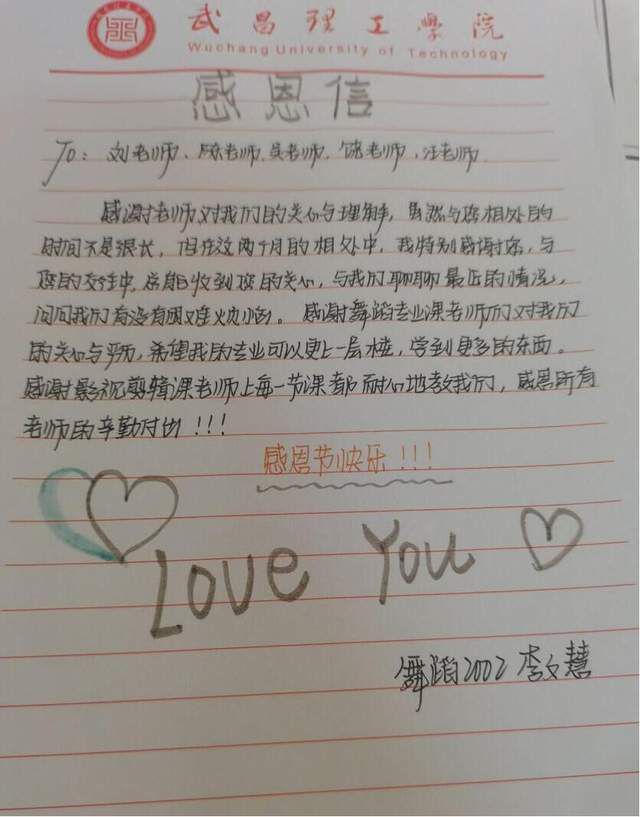 武昌理工學院
Wuchang University of Technology
感恩信
To: 刘老师、陈老师、吴老师、饶老师、汪老师
感谢老师对我们的关心与理解,虽然与您相处的
时间不是很长,但在这两个月的相处中,我特别感谢您,与
您的交往中,总能收到您的关心,与我们聊聊最近的情况,
问问我们有没有困难烦恼。感谢舞蹈专业课老师们对我们
的关心与,希望我的专业可以更上一层楼,学到更多的东西。
感谢影视剪辑课老师上每一节课都耐心地教我们,感恩所有
老师的辛勤付出!!!
感恩节快乐!!!
Love You
舞蹈2002 李文慧